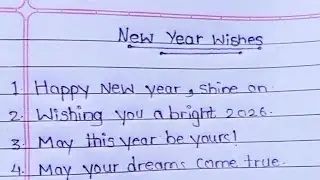 New Year Wishes
1. Happy New year, shine on.
2. Wishing you a bright 2026.
3. May this year be yours!
4. May your dreams come true.